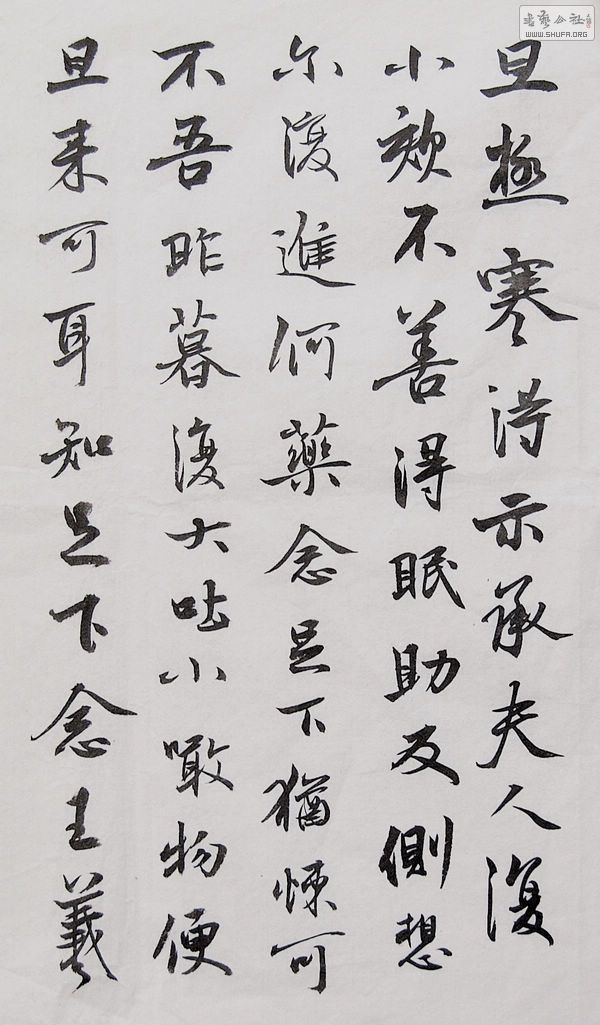 旦極寒得示承夫人復
小欬不善得眠助反側想
尓復進何藥念足下猶悚可
不吾昨暮復大吐小噉物便
旦来可耳知足下念王羲
書藝公社
WWW.SHUFA.ORG